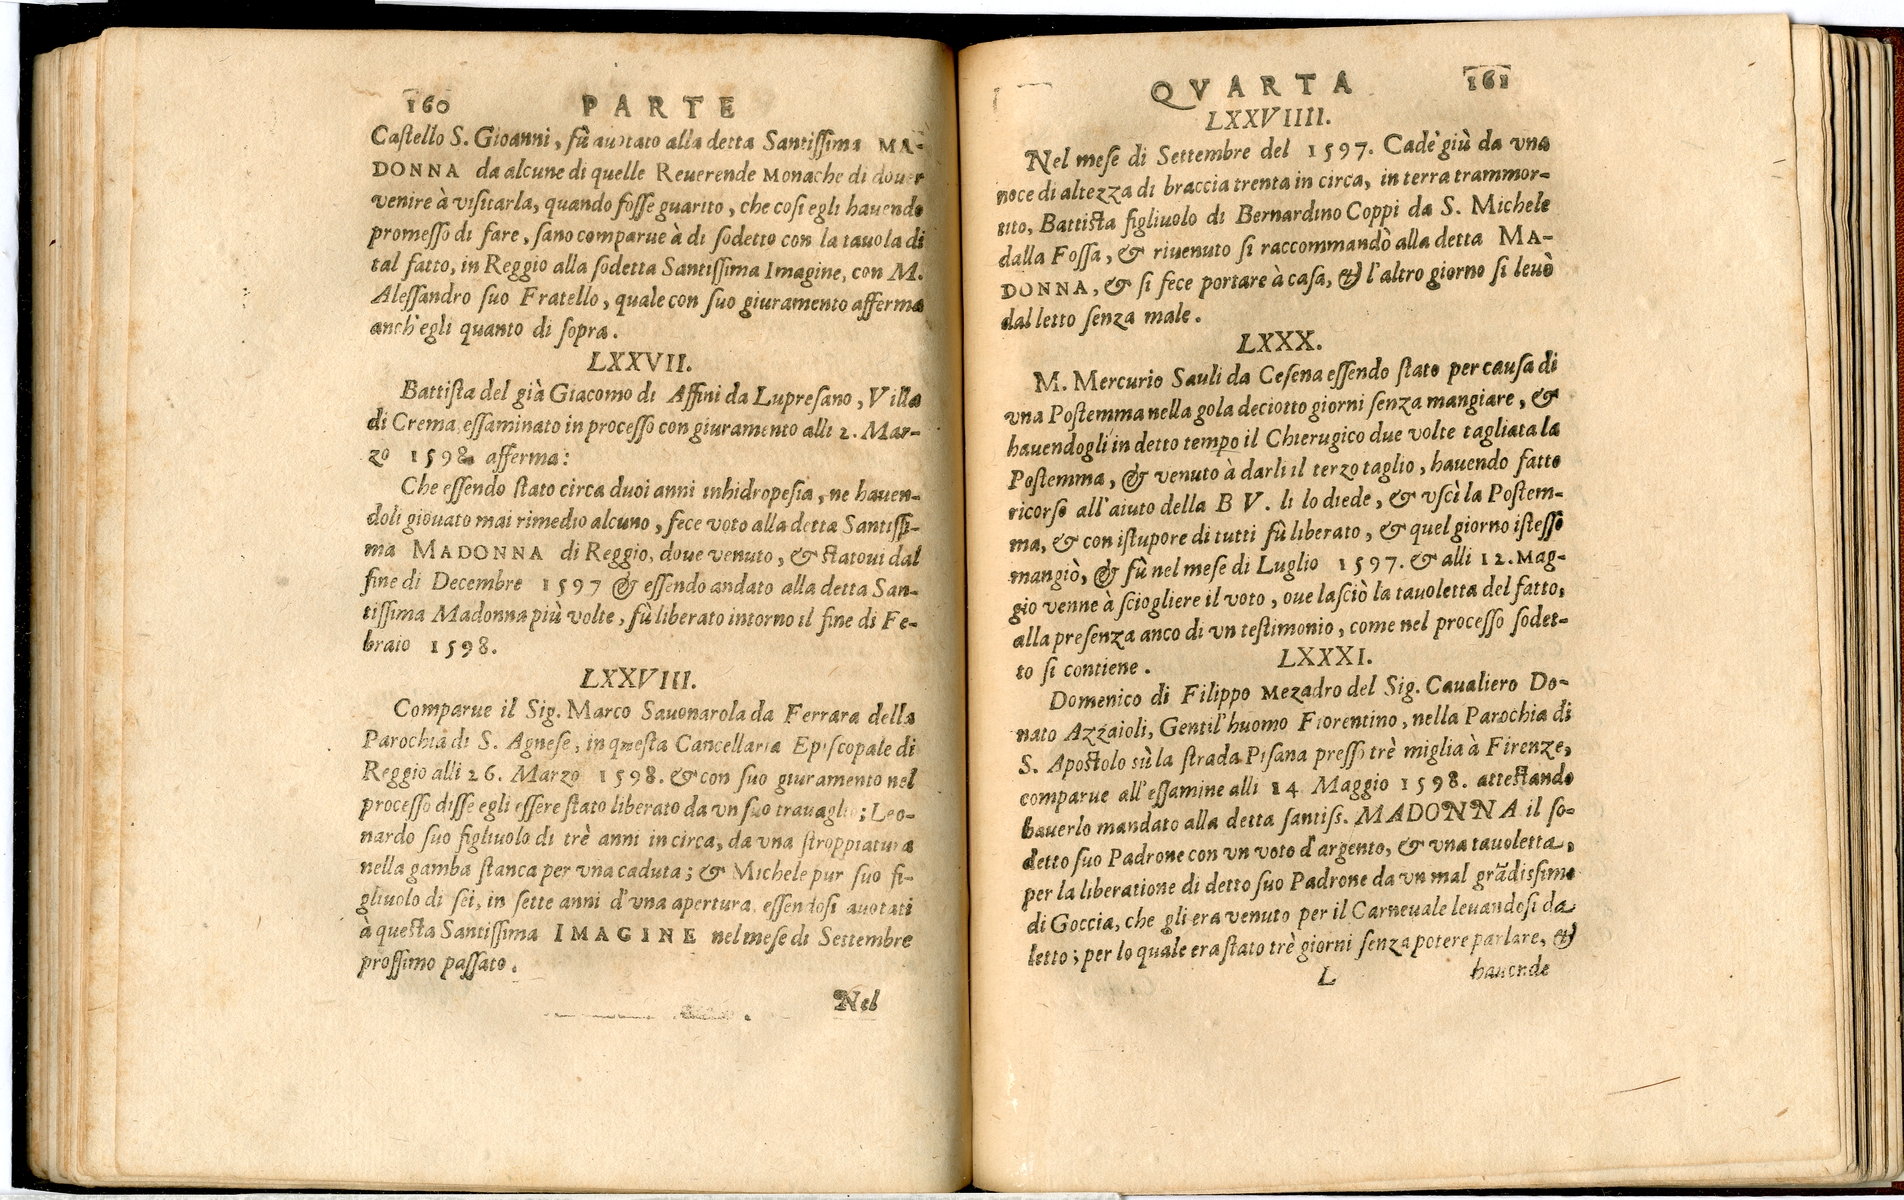 160 PARTE
Castello S. Gioanni, fù auotato alla detta Santissima MA-
DONNA da alcune di quelle Reuerende Monache di douer
venire à visitarla, quando fosse guarito, che cosi egli hauendo
promesso di fare, sano comparue à di sodetto con la tauola di
tal fatto, in Reggio alla sodetta Santissima Imagine, con M.
Alessandro suo Fratello, quale con suo giuramento afferma
anch'egli quanto di sopra.
LXXVII.
Battista del già Giacomo di Affini da Lupresano, Villa
di Crema essaminato in processo con giuramento alli 2. Mar-
zo 1598. afferma:
Che essendo stato circa duoi anni inhidropesia, ne hauen-
doli giouato mai rimedio alcuno, fece voto alla detta Santissi-
ma MADONNA di Reggio, doue venuto, & statoui dal
fine di Decembre 1597 & essendo andato alla detta San-
tissima Madonna più volte, fù liberato intorno il fine di Fe-
braio 1598.
LXXVIII.
Comparue il Sig. Marco Sauonarola da Ferrara della
Parochia di S. Agnese, in questa Cancellaria Episcopale di
Reggio alli 26. Marzo 1598. & con suo giuramento nel
processo disse egli essere stato liberato da vn suo trauaglio; Leo-
nardo suo figliuolo di trè anni in circa, da vna stroppiatura
nella gamba stanca per vna caduta; & Michele pur suo fi-
gliuolo di sei, in sette anni d'vna apertura, essendosi auotati
à questa Santissima IMAGINE nel mese di Settembre
prossimo passato.
Nel
QVARTA 161
LXXVIIII.
Nel mese di Settembre del 1597. Cadè giù da vna
noce di altezza di braccia trenta in circa, in terra trammor-
tito, Battista figliuolo di Bernardino Coppi da S. Michele
dalla Fossa, & riuenuto si raccommandò alla detta MA-
DONNA, & si fece portare à casa, & l'altro giorno si leuò
dal letto senza male.
LXXX.
M. Mercurio Sauli da Cesena essendo stato per causa di
vna Postemma nella gola deciotto giorni senza mangiare, &
hauendogli in detto tempo il Chierugico due volte tagliata la
Postemma, & venuto à darli il terzo taglio, hauendo fatto
ricorso all'aiuto della B V. li lo diede, & vscì la Postem-
ma, & con istupore di tutti fù liberato, & quel giorno istesso
mangiò, & fù nel mese di Luglio 1597. & alli 12. Mag-
gio venne à sciogliere il voto, oue lasciò la tauoletta del fatto,
alla presenza anco di vn testimonio, come nel processo sodet-
to si contiene.
LXXXI.
Domenico di Filippo Mezadro del Sig. Caualiero Do-
nato Azzaioli, Gentil'huomo Fiorentino, nella Parochia di
S. Apostolo sù la strada Pisana presso trè miglia à Firenze,
comparue all'essamine alli 14. Maggio 1598. attestando
hauerlo mandato alla detta santiss. MADONNA il so-
detto suo Padrone con vn voto d'argento, & vna tauoletta,
per la liberatione di detto suo Padrone da vn mal grãdissimo
di Goccia, che gli era venuto per il Carneuale leuandosi da
letto; per lo quale era stato trè giorni senza potere parlare, &
L hauende